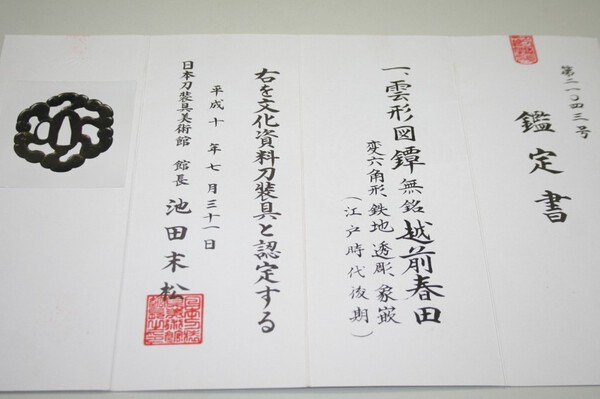 第二一〇四三号
鑑定書
一、雲形図鐔 無銘 越前春田
変六角形 鉄地 透彫 象嵌
（江戸時代後期）
右を文化資料刀装具と認定する
平成十年七月三十一日
日本刀装具美術館 館長 池田末松